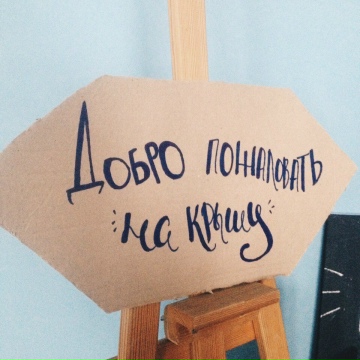 Добро пожаловать
на крышу